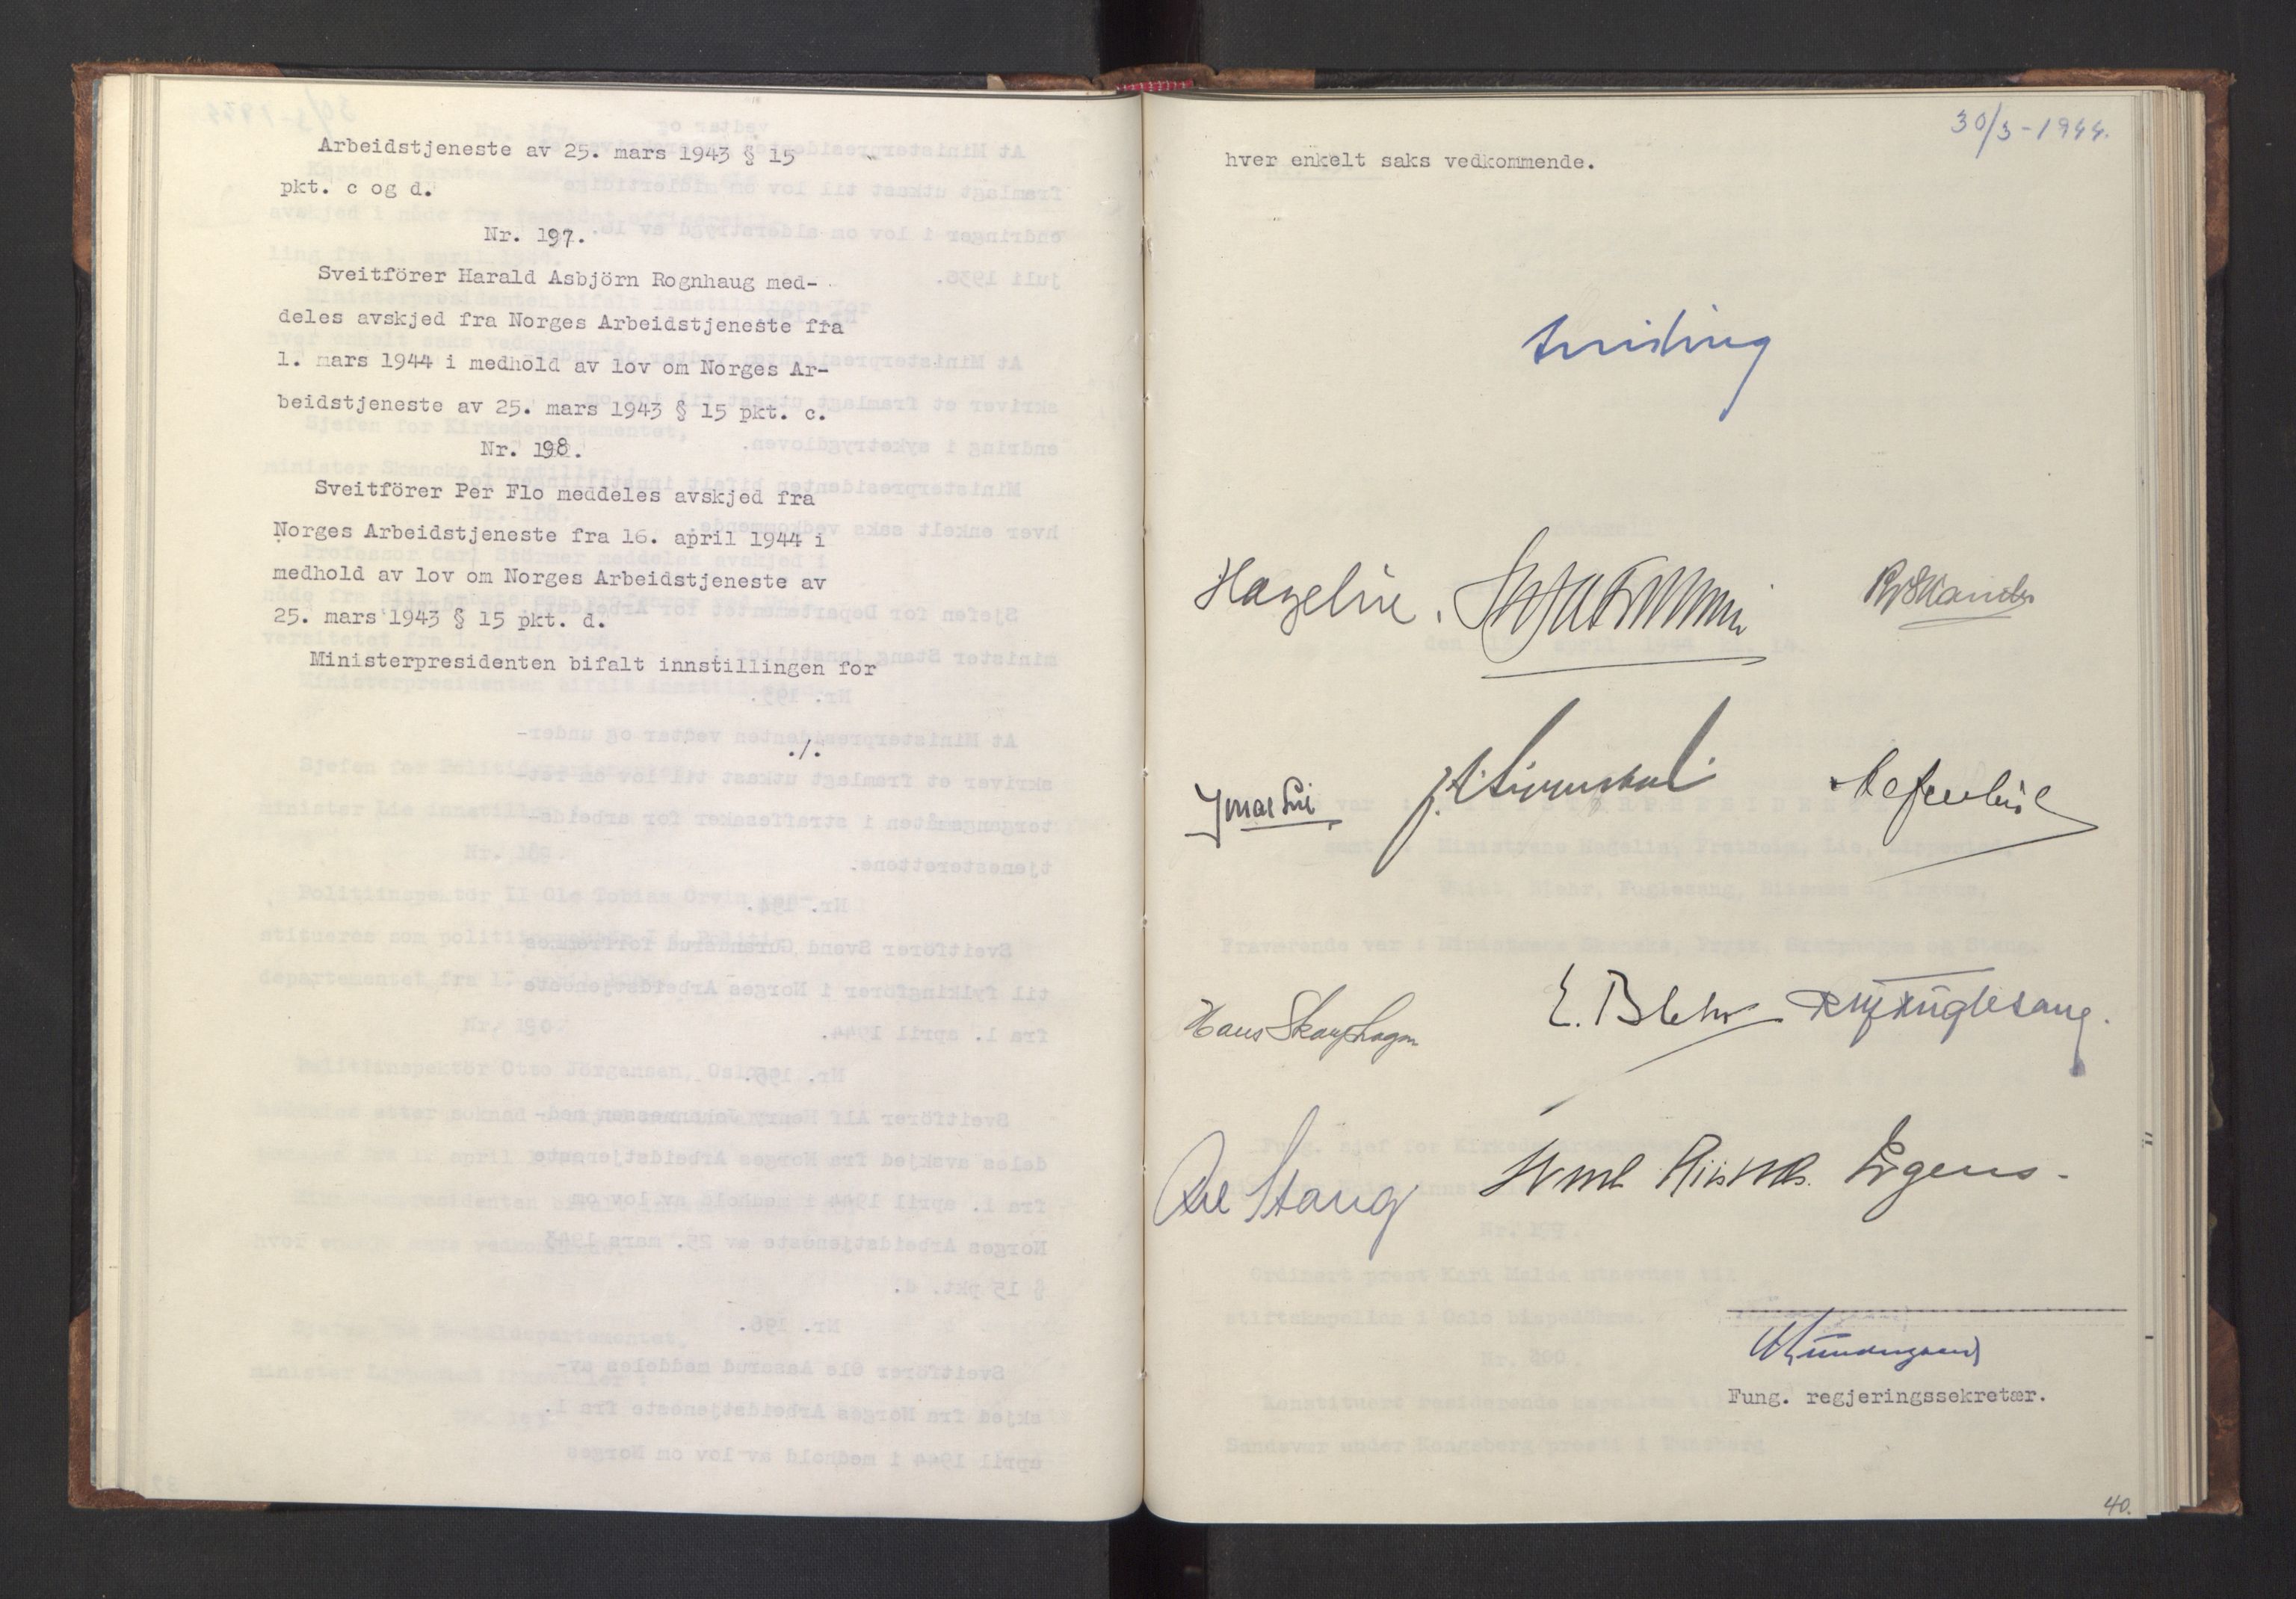 Arbeidstjeneste av 25. mars 1943 § 15
pkt. c og d.
Nr. 197.
Sveitförer Harald Asbjörn Rognhaug med-
deles avskjed fra Norges Arbeidstjeneste fra
1. mars 1944 i medhold av lov om Norges Ar-
beidstjeneste av 25. mars 1943 § 15 pkt. c.
Nr. 198.
Sveitförer Per Flo meddeles avskjed fra
Norges Arbeidstjeneste fra 16. april 1944 i
medhold av lov om Norges Arbeidstjeneste av
25. mars 1943 § 15 pkt. d.
Ministerpresidenten bifalt innstillingen for
./.
30/3-1944.
hver enkelt saks vedkommende.
Hagelin.
Hans Skarphagen
E. Blehr
Fuglesang.
Axel Stang
Irgens.
Fung. regjeringssekretær.
40.